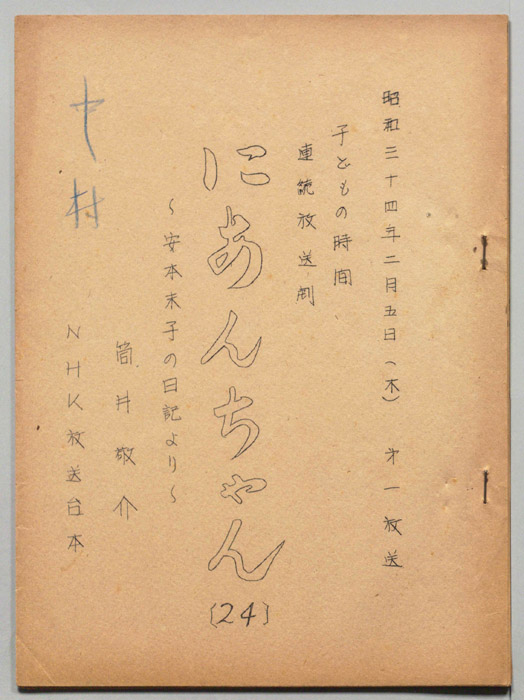 昭和三十四年二月五日(木) 才一放送
子どもの時間
連続放送劇
にあんちゃん
(24)
~安本末子の日記より~
筒井敬介
NHK放送台本
中村